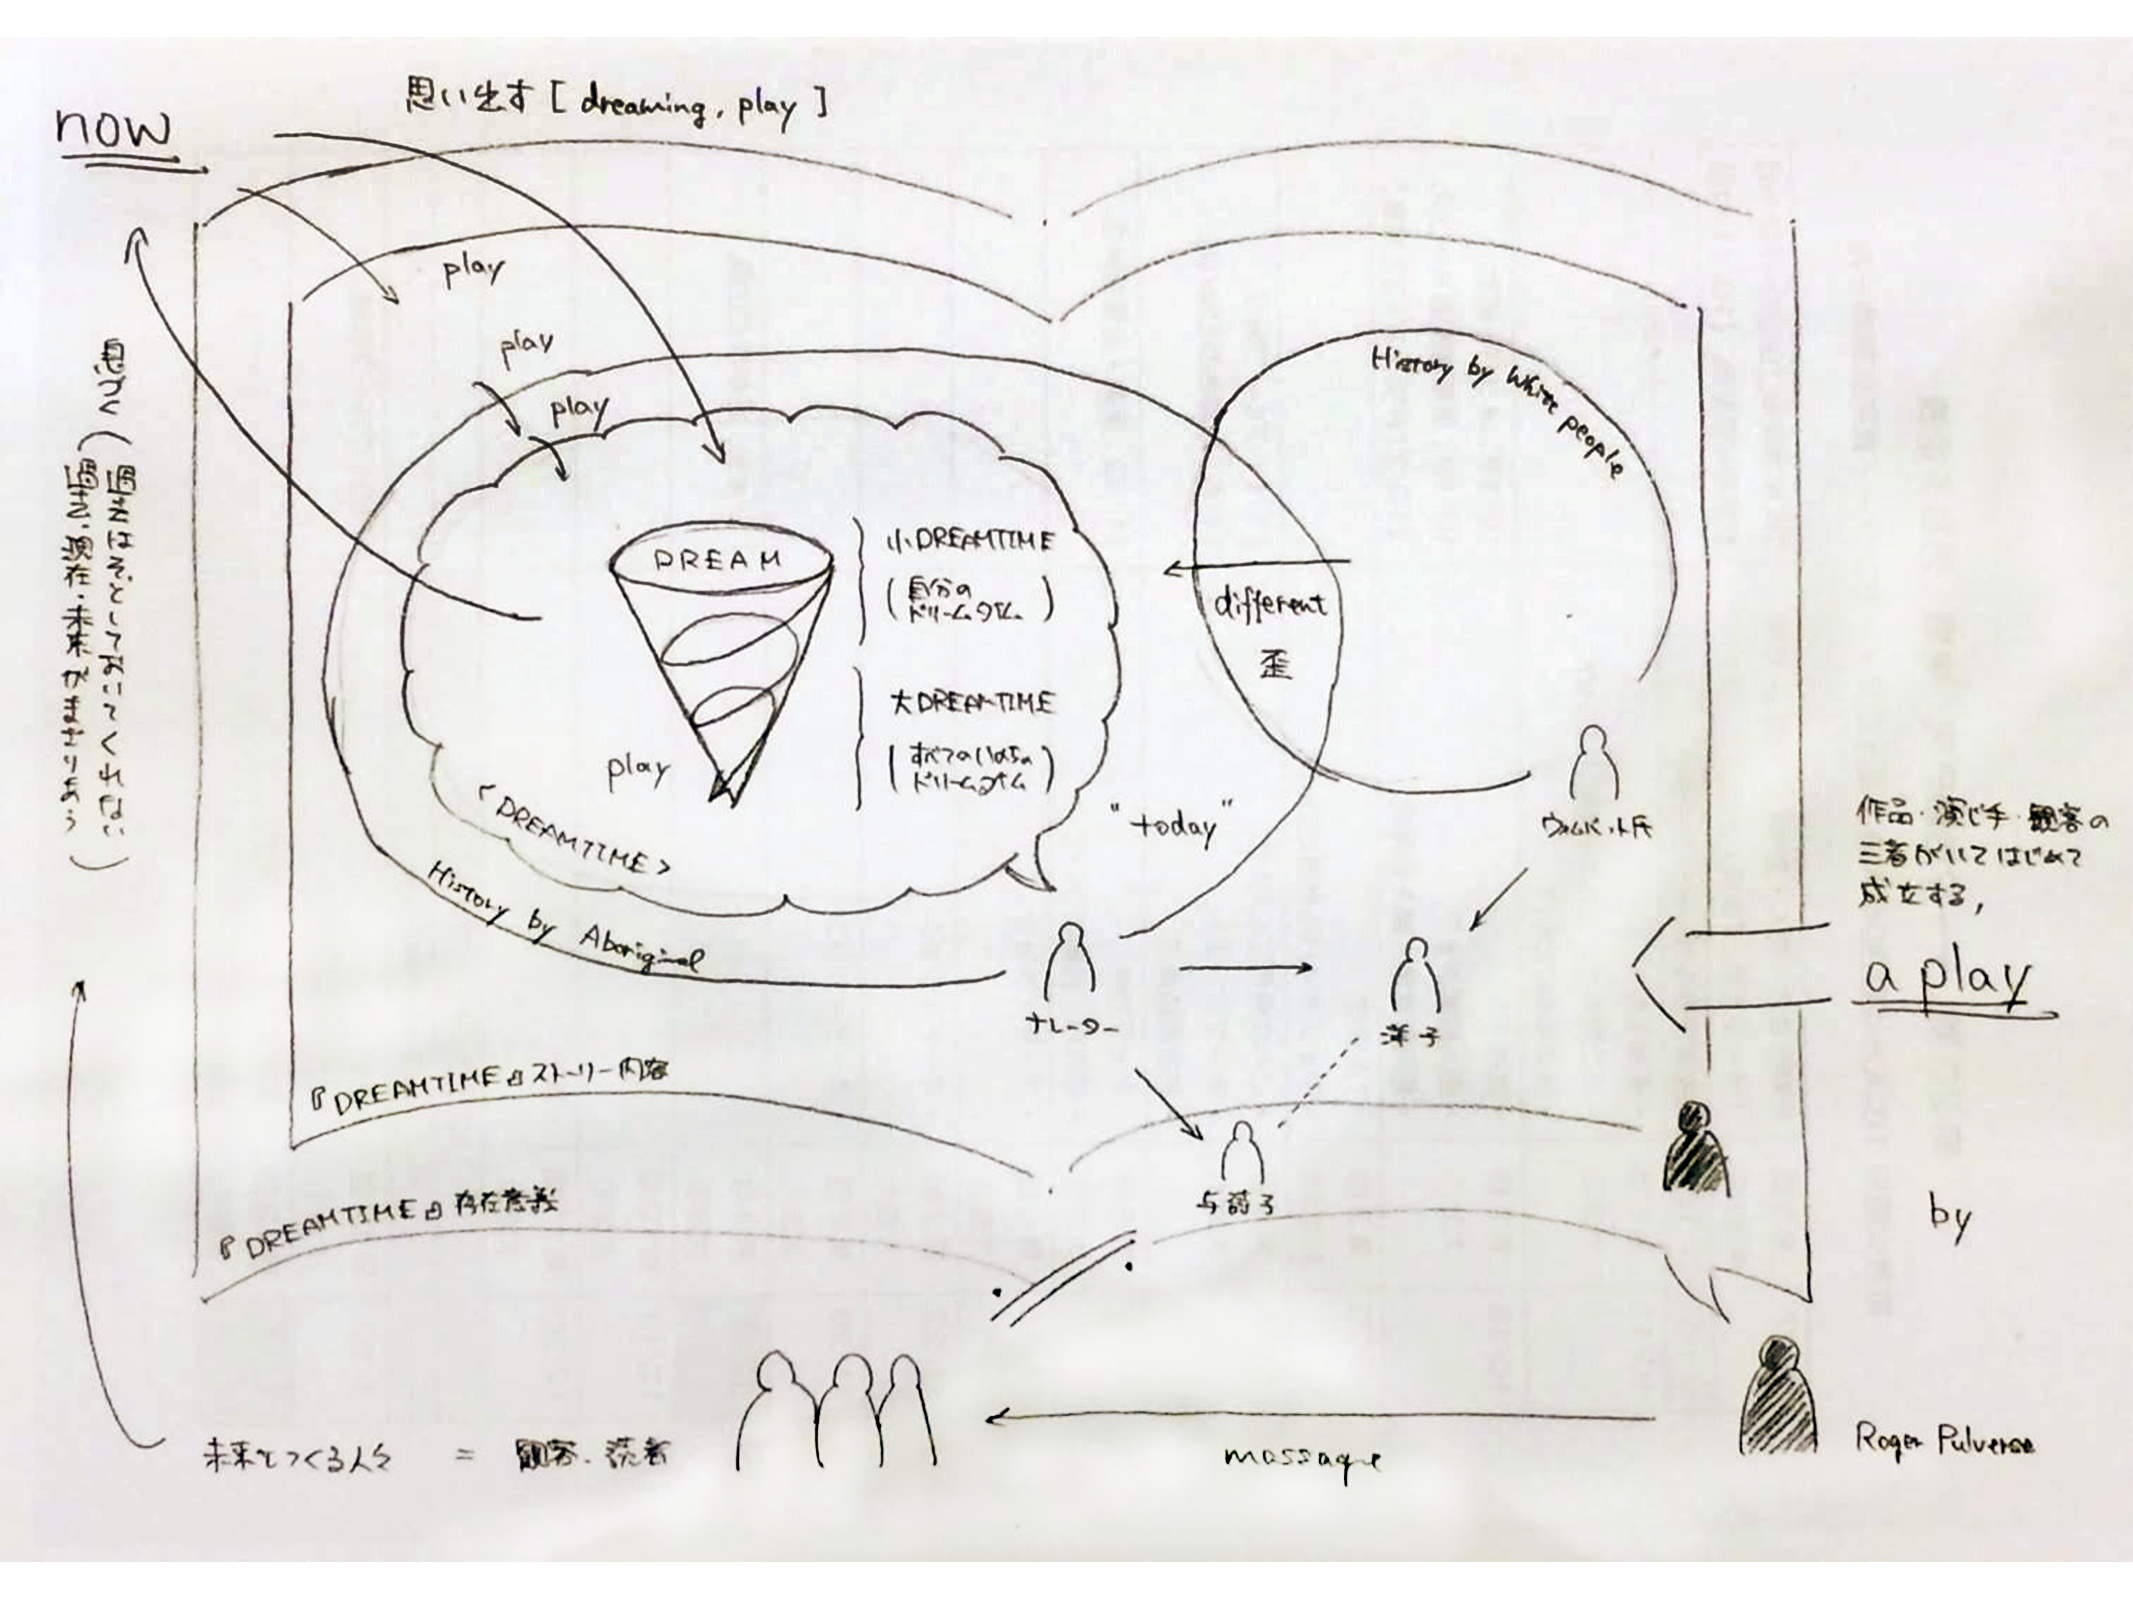 now
思い出す [ dreaming, play ]
play
play
play
History by White people
DREAM
小DREAMTIME
(自分の
ドリームタイム)
大DREAMTIME
(すべてのいのちの
ドリームタイム)
different
歪
play
<DREAMTIME>
"today"
History by Aboriginal
ウォムバット氏
ナレーター
洋子
作品・演じ手・観客の
三者がいてはじめて
成立する,
a play
息づく
(過去はそっとしておいてくれない
過去・現在・未来がまざりあう)
『DREAMTIME』ストーリー内容
『DREAMTIME』存在意義
by
未来をつくる人々 = 観客、読者
massaqe
Roger Pulverse